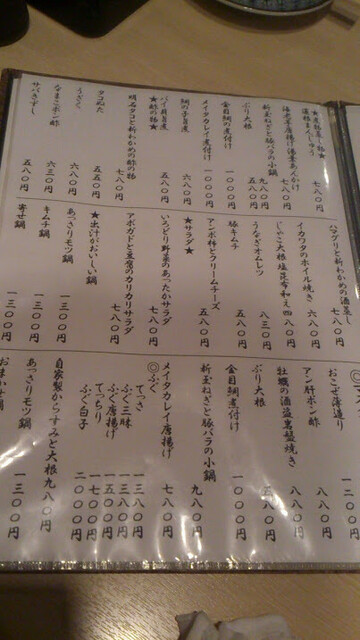 ★煮物蒸し物★
蓮根まんじゅう 七八〇円
海老芋唐揚げ湯葉あんかけ 七八〇円
新玉ねぎと豚バラの小鍋 九八〇円
ぶり大根 五八〇円
金目鯛の煮付け 一〇〇〇円
メイタカレイ煮付け 一〇〇〇円
鯛の子旨煮 六八〇円
バイ貝旨煮 五八〇円
★酢の物★
明石タコと新わかめの酢の物 七八〇円
タコぬた 五五〇円
うざく 六八〇円
なまこポン酢 六三〇円
サバきずし 五八〇円
ハマグリと新わかめの酒蒸し 七八〇円
イカワタのホイル焼き 六八〇円
じゃこ大根塩昆布和え 四八〇円
うなぎオムレツ 八三〇円
豚キムチ 五八〇円
アンポ柿とクリームチーズ 五八〇円
★サラダ★
いろどり野菜のあったかサラダ 七八〇円
アボガドと豆腐のカリカリサラダ 七八〇円
★出汁がおいしい鍋
あっさりモツ鍋 一三〇〇円
キムチ鍋 一三〇〇円
寄せ鍋 一三〇〇円
おこぜ薄造り 一二〇〇円
アン肝ポン酢 八八〇円
牡蠣の酒盗黒盤焼き 八八〇円
ぶり大根 五八〇円
金目鯛煮付け 一〇〇〇円
新玉ねぎと豚バラの小鍋 九八〇円
メイタカレイ唐揚げ 七八〇円
◎ふぐ
てっさ 一三八〇円
ふぐ三昧 一三八〇円
ふぐ唐揚げ 一五〇〇円
てっちり 一七〇〇円
ふぐ白子 二〇〇〇円
自家製からすみと大根 九八〇円
あっさりモツ鍋 一三〇〇円